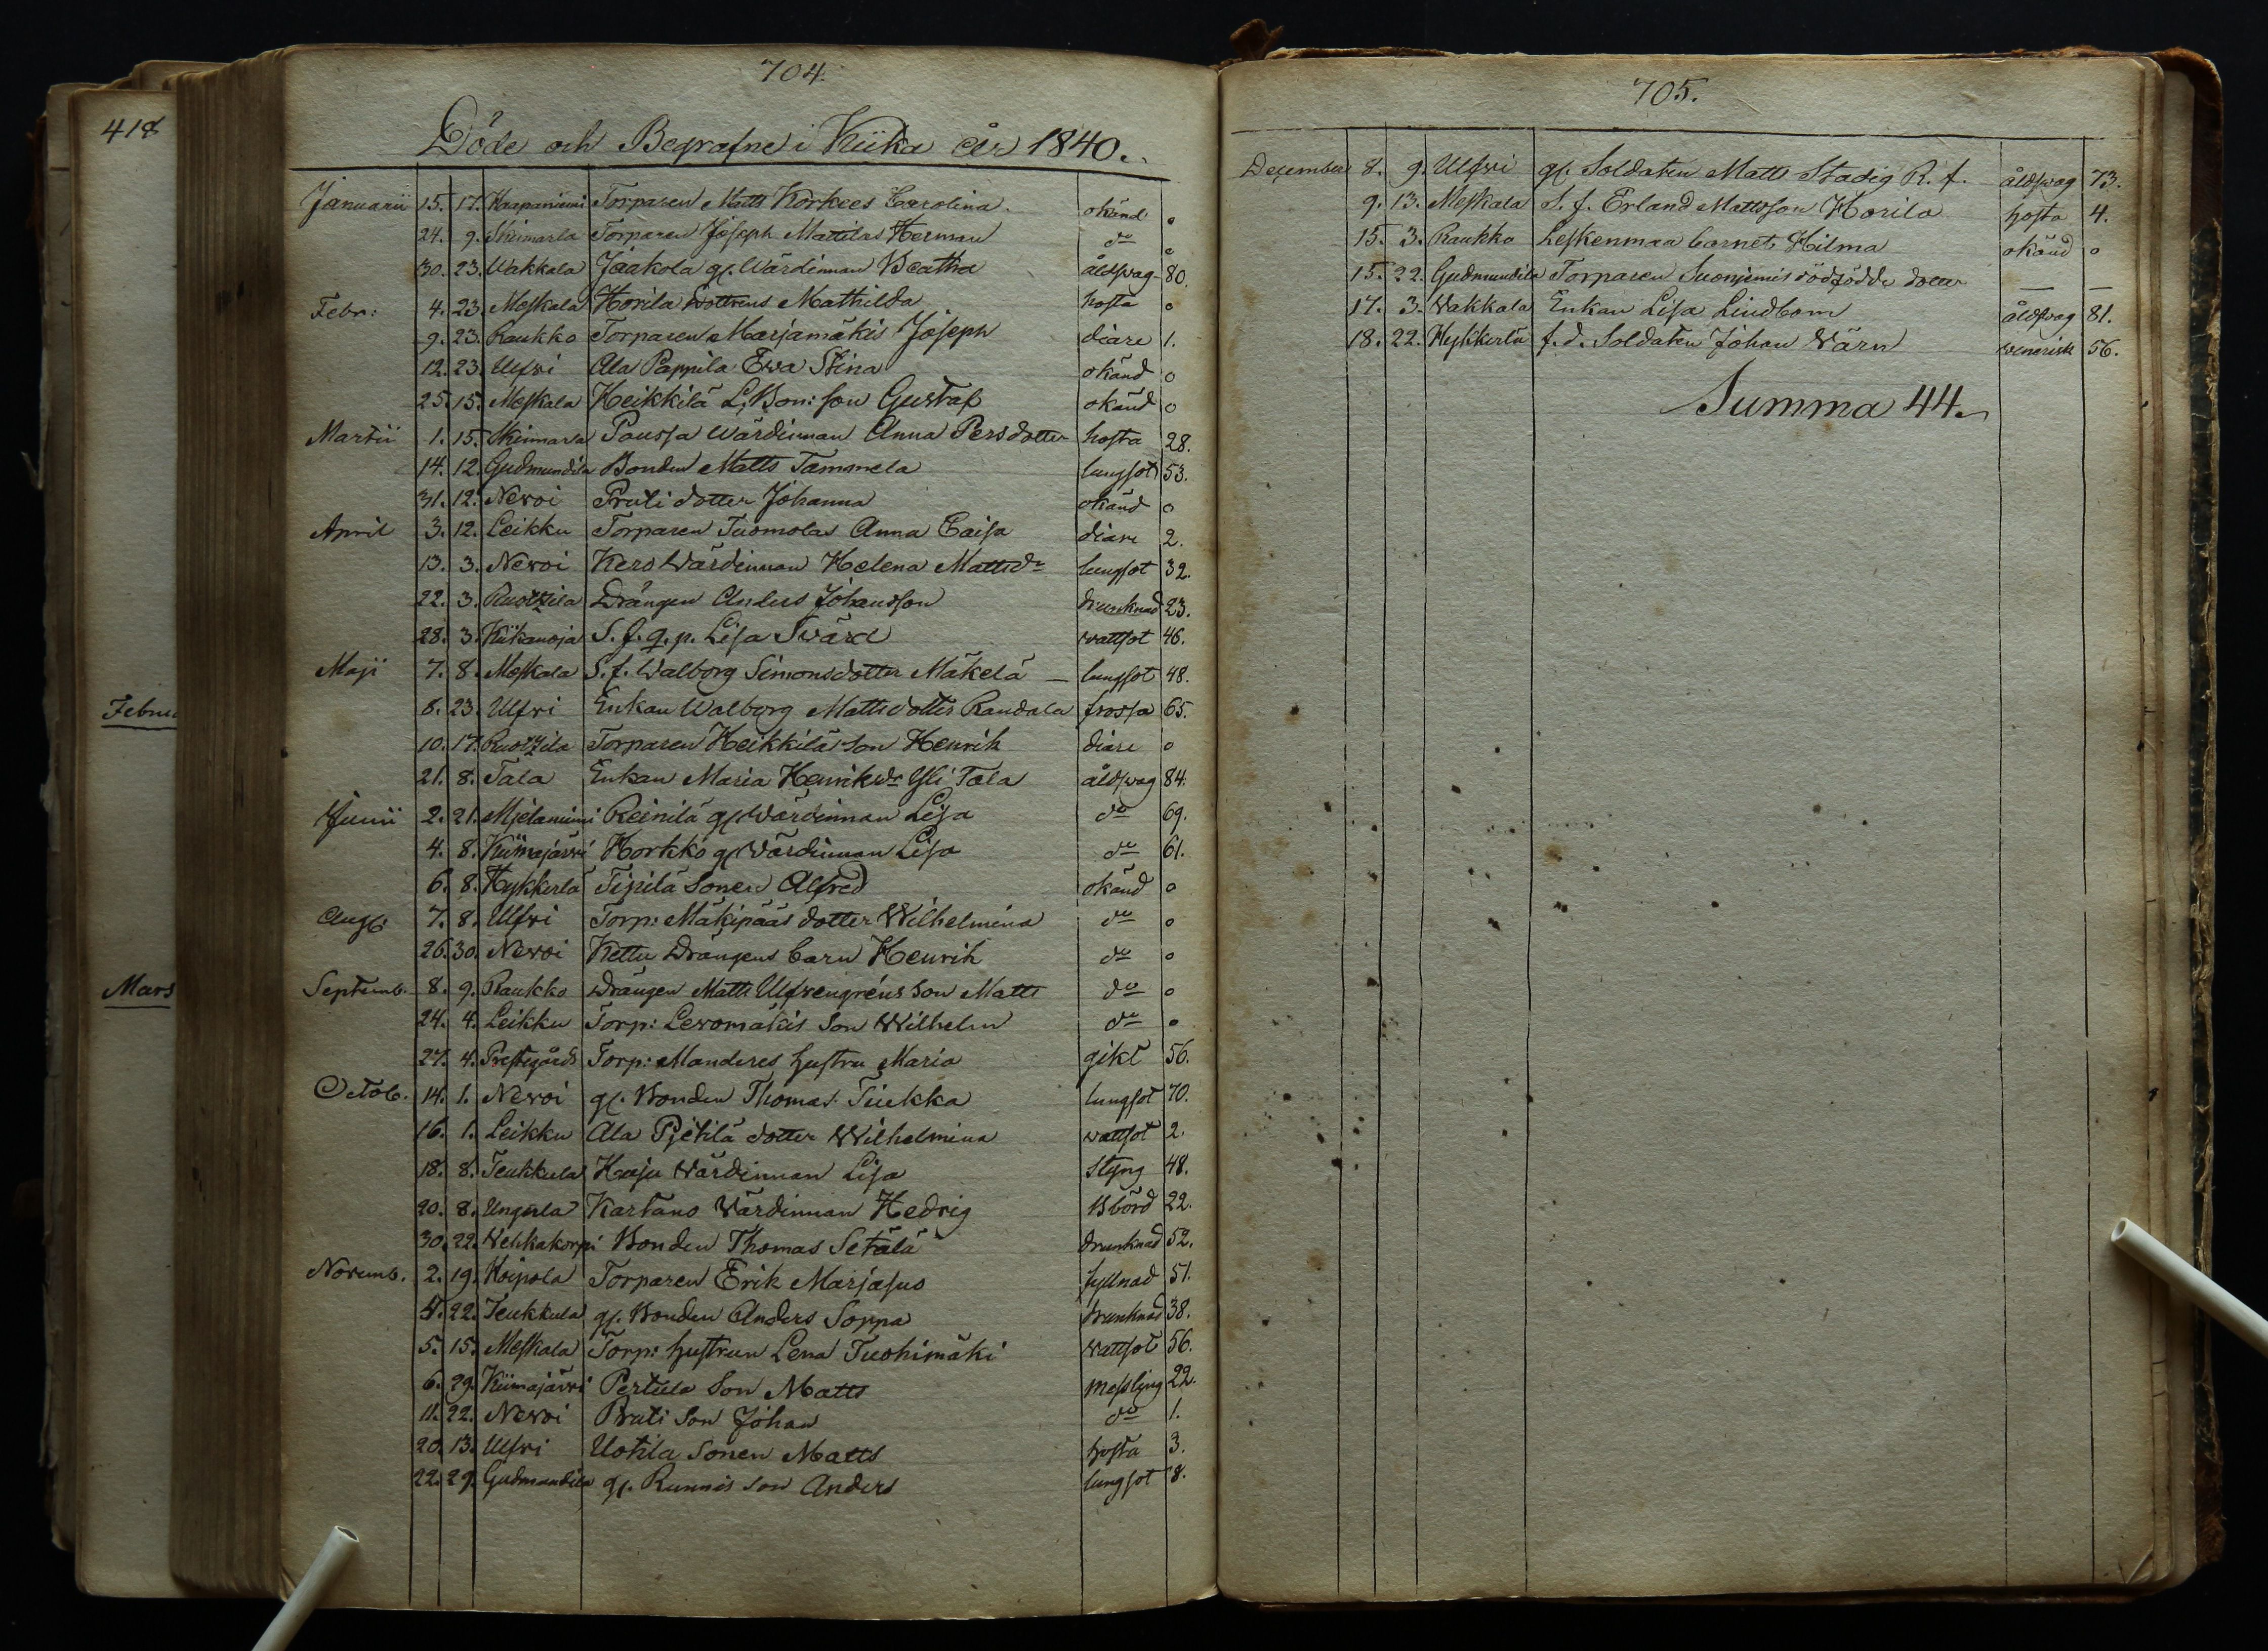 418
Febru
Mars
704.
Döde och Begrafne i Kiika år 1840.
Januarii 15. 17. Haapaniemi Torparen Matts Korkees Carolina. okänd 0
24. 9. Skinnarla Torparen Joseph Mattilas Herman do 0
30. 23. Wakkala Jaakola gl. Wärdinnan Beatha åldswag 80.
Febr: 4. 23. Meskala Horila Dottrens Mathilda hosta 0
9. 23. Raukko Torparen Marjamäkis Joseph diare 1.
12. 23. Ulfvi Ala Pappila Ewa Stina okänd 0
25. 15. Meskala Heikkilä L. Bon: son Gustaf okänd 0
Martii 1. 15. Skinnarla Paussa Wärdinnan Anna Persdotter hosta 28.
14. 12. Gudmundila Bonden Matts Tammela lungsot 53.
31. 12. Nevoi Pruti dotter Johanna okänd 0
April 3. 12. Leikku Torparen Tuomolas Anna Caisa diare 2.
13. 3. Nevoi Kero Wärdinnan Helena Mattsdr lungsot 32.
22. 3. Ruotzila Drängen Anders Johansson drunknad 23.
28. 3. Kiikanoja S. f. q. p. Lisa Svärd wattsot 46.
Maji 7. 8. Meskala S. f. Walborg Simonsdotter Mäkelä — lungsot 48.
8. 23. Ulfvi Enkan Walborg Mattsdotter Randala frossa 65.
10. 17. Ruotzila Torparen Heikkilä son Henrik diare 0
21. 8. Tala Enkan Maria Henriksdr Yli Tala åldswag 84.
Junii 2. 21. Mielaniemi Reinilä gl. Wärdinnan Lisa do 69.
4. 8. Kiimajärvi Horkko gl. Wärdinnan Lisa do 61.
6. 8. Hykkerlä Tipilä Sonen Alfred okänd 0
Aug: 7. 8. Ulfvi Torp: Mäkipääs dotter Wilhelmina do 0
26. 30. Nevoi Kettu Drängens barn Henrik do 0
Septemb. 8. 9. Raukko Drängen Matts Ulfvengréns Son Matts do 0
24. 4. Leikku Torp: Levomäkis Son Wilhelm do 0
27. 4. Prestegårds Torp: Manderes hustru Maria gikt 56.
Octob. 14. 1. Nevoi gl. Bonden Thomas Tiukka lungsot 70.
16. 1. Leikku Ala Pietilä dotter Wilhelmina wattsot 2.
18. 8. Jeukkula Haju Wärdinnan Lisa styng 48.
20. 8. Ungerla Kartano Wärdinnan Hedvig Bbörd 22.
30. 22. Wehkakorpi Bonden Thomas Setälä drunknad 52.
Novemb. 2. 19. Koipola Torparen Erik Marjasuo fyllnad 51.
4. 22. Jeukkula gl. Bonden Anders Soppa drunknad 38.
5. 15. Meskala Torp: hustrun Lena Tuohimäki wattsot 56.
6. 29. Kiimajärvi Pertula Son Matts messling 22.
11. 22. Nevoi Pruti Son Johan do 1.
20. 13. Ulfvi Uotila Sonen Matts hosta 3.
22. 29. Gudmundila gl. Runnis son Anders lungsot 8.
705.
December 8. 9. Ulfvi gl. Soldaten Matts Stadig R. f. åldswag 73.
9. 13. Meskala S. f. Erland Mattsson Horila hosta 4.
15. 3. Raukko Leskenmaa barnets Hilma okänd 0
15. 22. Gudmundila Torparen Suoniemis dödfödde dotter — —
17. 3. Wakkala Enkan Lisa Lindbom åldswag 81.
18. 22. Hykkerlä f. d. Soldaten Johan Wärn venerisk 56.
Summa 44.